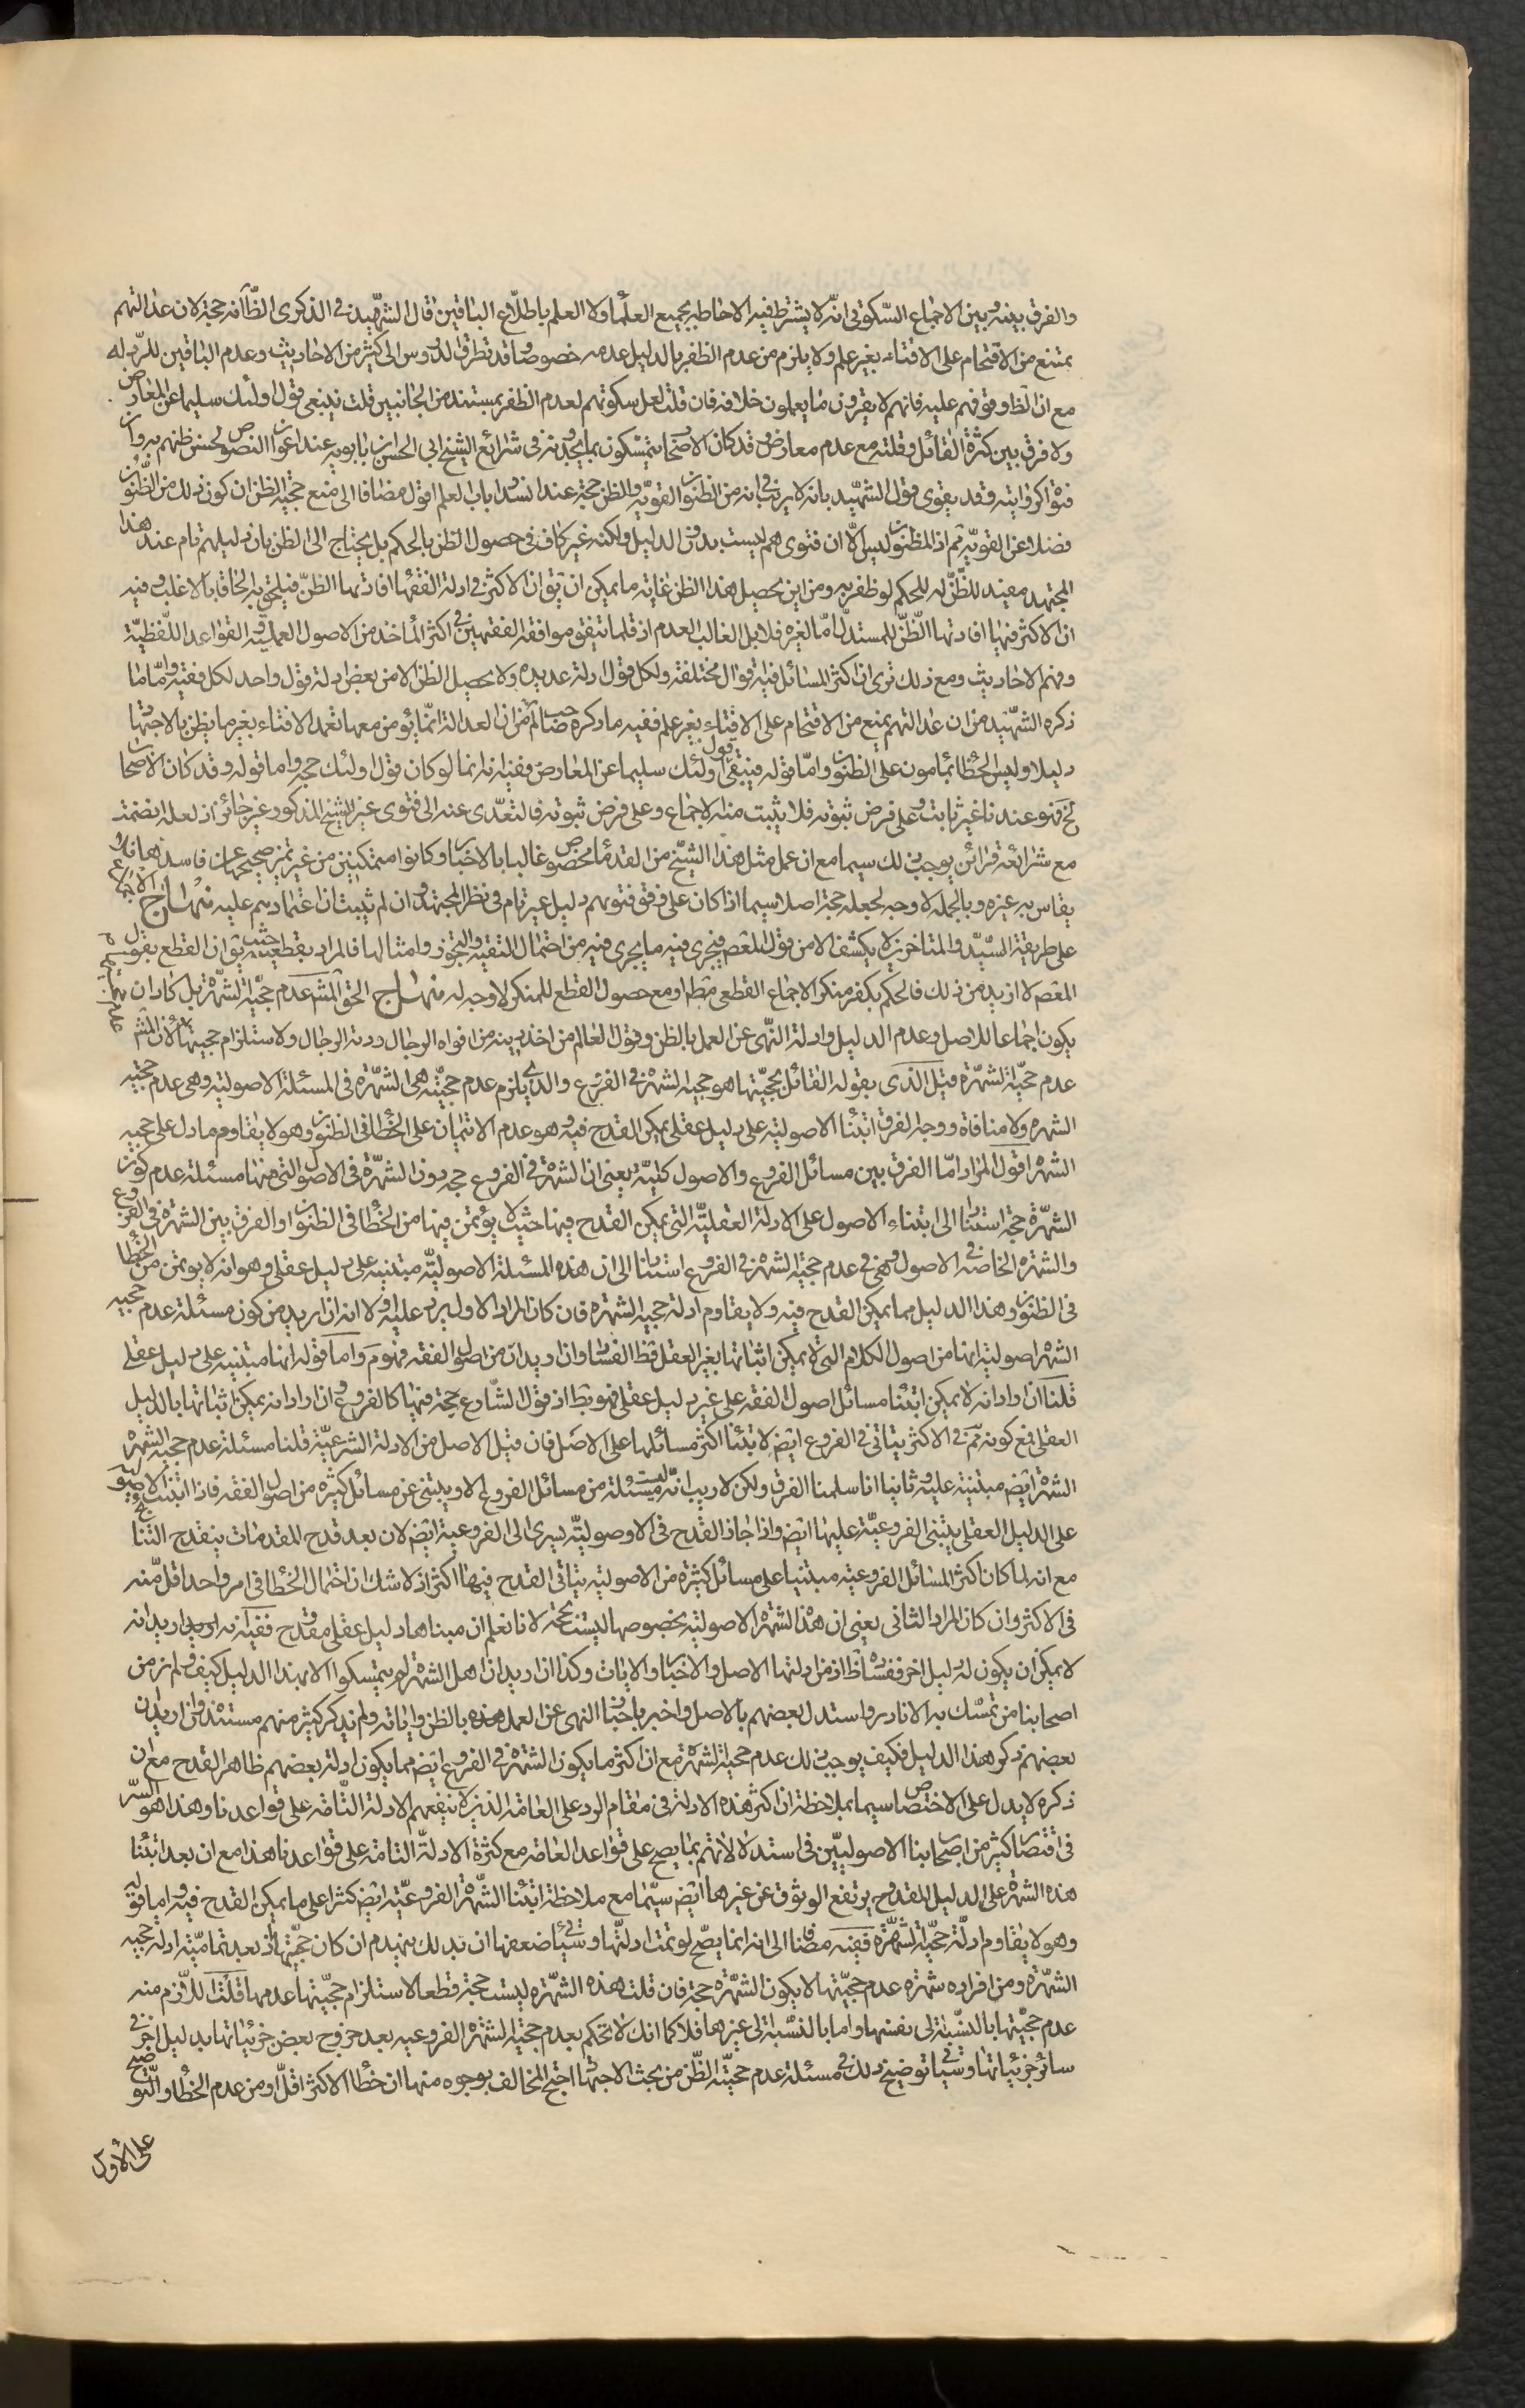 والفرق بينه وبين الاجماع السكوتى انّه لا يشترط فيه الاحاطه بجميع العلما ولا العلم باطلاع الباقين قال الشهيد فى الذكرى الظ انه حجة لان عدالتهم
تمنع من الاقتحام على الافتاء بغير علم ولا يلزم من عدم الظفر بالدليل عدمه خصوصا وقد تطرق الدروس الى كثير من الاحاديث وعدم الباقين للرد له
مع ان الظ وقوفهم عليه فانهم لا يقرون ما يعلمون خلافه فان قلت لعل سكوتهم لعدم الظفر بمستند من الجانبين قلت فيبقى قول اولئك سليما عن المعارض
ولا فرق بين كثرة القائل وقلته مع عدم معارض وقد كان الاصحاب يتمسكون بما يجدونه فى شرائع الشيخ ابى الحسن بن بابويه عند اعواز النصوص لحسن ظنهم به وان
فتواه كروايته وقد يقوى قول الشهيد بانه لا ريب فى انه من الظنون القويّة والظن حجة عند انسداد باب العلم اقول مضافا الى منع حجية الظن ان كون ذلك من الظنون
فضلا عن القويّة ثم اذ المظنون ليس الا ان فتوىهم ليست بدون الدليل ولكنه غير كاف فى حصول الظن بالحكم بل يحتاج الى الظن بان دليلهم تام عند هذا
المجتهد مفيد للظنّ له للحكم لو ظفر به ومن اين يحصل هذا الظن غاية ما يمكن ان يق ان الاكثر فى ادلة الفقها افادتها الظنّ فيلحق به الحاقا بالاغلب وفيه
ان الاكثر فيها افادتها الظنّ للمستدل امّا لغيره فلا بل الغالب العدم اذ قلما يتفق موافقة الفقيهين فى اكثر المأخذ من الاصول العمليه والقواعد اللفظيّة
وفهم الاحاديث ومع ذلك ترى ان اكثر المسائل فيه اقوال مختلفة ولكل قول ادلة عديده ولا يحصل الظن الا من بعض ادلة قول واحد لكل فقيه وامّا ما
ذكره الشهيد من ان عدالتهم يمنع من الاقتحام على الافتاء بغير علم ففيه ما ذكره صاحب لم من ان العدالة انّما يؤمن معها تعمد الافتاء بغير ما يظن بالاجتهاد
دليلا وليس الخطا بمأمون على الظنون وامّا قوله فيبقى قول اولئك سليما عن المعارض ففيه انه انما لو كان قول اولئك حجة واما قوله وقد كان الاصحاب
الخ فهو عندنا غير ثابت وعلى فرض ثبوته فلا يثبت منه الاجماع وعلى فرض ثبوته فالتعدّى عنه الى فتوى غير الشيخ المذكور غير جائز اذ لعله انضمت
مع شرائعه قرائن يوجب ذلك سيما مع ان عمل مثل هذا الشيخ من القدما مخصوص غالبا بالاخبار وكانوا متمكنين من تمييز صحيحها عن فاسدها فلا
يقاس به غيره وبالجملة لا وجه لجعله حجة اصلا سيما اذا كان على وفق فتويهم دليل غير تام فى نظر المجتهد وان لم يثبت ان اعتمادهم عليه منهاج الاجماع
على طريقة السيّد والمتاخرين لا يكشف الا من قول المعصوم فيجرى فيه ما يجرى فيه من احتمال التقيه والتجوز وامثالها فالمراد بقطعيته حيث يق ان القطع بقول
المعصم لا ازيد من ذلك فالحكم بكفر منكر الاجماع القطعى مط ومع حصول القطع للمنكر لا وجه له منهاج الحق المشهور عدم حجّية الشهرة بل كاد ان
يكون اجماعا للاصل وعدم الدليل وادلة النّهى عن العمل بالظن وقول العالم من اخذ دينه من افواه الرجال ردته الرجال ولاستلزام حجيتها لان المش
عدم حجّية الشهرة قيل الّذى يقوله القائل بحجّيتها هو حجية الشهرة فى الفروع والذى يلزم عدم حجيّته هى الشهرة فى المسئلة الاصولية وهى عدم حجّية
الشهره ولا منافاة ووجه الفرق ابتناء الاصولية على دليل عقلى يمكن القدح فيه وهو عدم الايتمان على الخطا فى الظنون وهو لا يقاوم ما دل على حجية
الشهرة اقول المراد امّا الفرق بين مسائل الفروع والاصول كليّة يعنى ان الشهرة فى الفروع حجه دون الشهرة فى الاصول التى منها مسئلة عدم كون
الشهرة حجة استنادا الى ابتناء الاصول على الادلة العقليّة التى يمكن القدح فيها حيث لا يؤتمن فيها من الخطا فى الظنون او الفرق بين الشهرة فى الفروع
والشهرة الخاصّه فى الاصول وهى فى عدم حجية الشهرة فى الفروع استنادا الى ان هذه المسئلة الاصوليّة مبتنيه على دليل عقلى وهو انه لا يؤتمن من الخطا
فى الظنون وهذا الدليل مما يمكن القدح فيه ولا يقاوم ادلة حجية الشهره فان كان المراد الاول يرد عليه اولا انه ان اريد من كون مسئلة عدم حجية
الشهرة اصولية انها من اصول الكلام التى لا يمكن اثباتها بغير العقل فظ الفساد وان اريد انّ من اصول الفقه فهو مَ وامّا قوله انها مبتنيه على دليل عقلى
قلنا ان اراد انه لا يمكن ابتنا مسائل اصول الفقه على غير دليل عقلى فهو بط اذ قول الشارع حجة فيها كالفروع وان اراد انه يمكن اثباتها بالدليل
العقلى فمع كونه ثمّ فى الاكثر يتاتى فى الفروع ايض لابتنا اكثر مسائلها على الاصل فان قيل الاصل من الادلة الشرعيّة قلنا مسئلة عدم حجية الشهرة
الشهرة ايض مبتنية عليه وثانيا انا سلمنا الفرق ولكن لا ريب انّه ليست مسئلة من مسائل الفروع الا ويبتنى عن مسائل كثيره من اصول الفقه فاذا ابتنت الاصول
على الدليل العقلى يبتنى الفروعيّة عليها ايض واذا جاز القدح فى الاوصوليّة يسرى الى الفروعية ايض لان بعد قدح المقدمات ينقدح النتايج
مع انه لما كان اكثر المسائل الفروعية مبتنيا على مسائل كثيرة من الاصولية يتاتى القدح فيها اكثر اذ لا شك ان احتمال الخطا فى امر واحد اقل منه
فى الاكثر وان كان المراد الثانى يعنى ان هذا الشهرة الاصولية بخصوصها ليست بحجة لانا نعلم ان مبناها دليل عقلى مقدوح ففيه انه ان اريد انه
لا يمكن ان يكون له دليل اخر ففساده ظ اذ من ادلتها الاصل والاخبار والايات وكذا ان اريد ان اهل الشهرة لم يتمسكوا الا بهذا الدليل كيف ولم نر من
اصحابنا من تمسّك به الا نادر واستدل بعضهم بالاصل واخر باخبار النهى عن العمل بالظن واياته ولم يذكر كثير منهم مستنده وان اريد ان
بعضهم ذكر هذا الدليل فكيف يوجب ذلك عدم حجية الشهرة مع ان اكثر ما يكون الشهرة فى الفروع ايض مما يكون ادلة بعضهم ظاهر القدح مع ان
ذكره لا يدل على الاختصاص سيما بملاحظة ان اكثر هذه الادلة فى مقام الرد على العامّة الذين لا ينفعهم الادلة التّامّه على قواعدنا وهذا هو السّر
فى اقتصار كثير من اصحابنا الاصوليّين فى استدلالاتهم بما يصح على قواعد العامّه مع كثرة الادلّة التامّة على قواعدنا هذا مع ان بعد ابتنا
هذه الشهرة على الدليل المقدوح يرتفع الوثوق عن غيرها ايض سيّما مع ملاحظة ابتنا الشّهرة الفروعيّة ايض كثيرا على ما يمكن القدح فيه واما قوله
وهو لا يقاوم ادلّة حجّية الشّهرة ففيه مضافا الى انه انما يصّح لو تمت ادلتّها وسيئاتى ضعفها ان بذلك ينهدم اركان حجّيتها اذ بعد تماميّة ادلة حجية
الشهرة ومن افراده شهرة عدم حجّيتها لا يكون الشهرة حجة فان قلت هذه الشهّره ليست حجة قطعا لاستلزام حجيّتها عدمها قلت اللازم منه
عدم حجيّتها بالنسّبة الى نفسها واما بالنسّبة الى غيرها فلا كما انك لا تحكم بعدم حجية الشهرة الفروعيه بعد خروج بعض جزئياتها بدليل اخر فى
سائر جزئياتها وسيئاتى توضيح ذلك فى مسئلة عدم حجيّة الظّن من بحث الاجتهاد احتج المخالف بوجوه منها ان خطا الاكثر اقلّ ومن عدم الخطا والتوضيح
على الاول